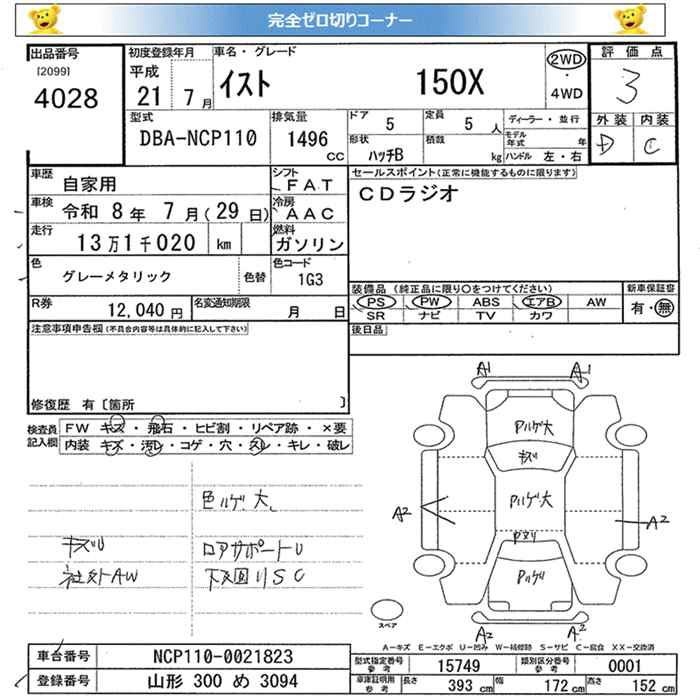 完全ゼロ切りコーナー
出品番号 初度登録年月 車名・グレード 評価点
[2099] 平成 イスト 150X 2WD 3
4028 21 7月 ・ 4WD
型式 排気量 ドア 5 定員 5人 ディーラー・並行 外装 内装
DBA-NCP110 1496 CC 形状 ハッチB 積載 kg モデル年式 年 D C
ハンドル 左・右
車歴 自家用 シフト FAT セールスポイント(正常に機能するものに限ります)
車検 令和 8年 7月(29日) 冷房 AAC CDラジオ
走行 13万1千020 km 燃料 ガソリン
色 グレーメタリック 色替 色コード 1G3
装備品 (純正品に限り○をつけてください) 新車保証書
R券 12,040円 名変通知期限 月 日 PS PW ABS エアB AW 有・無
SR ナビ TV カワ
注意事項申告欄(不具合内容等は具体的に記入して下さい) 後日品
修復歴 有[箇所 ]
検査員 FW キズ・飛石・ヒビ割・リペア跡・×要
記入欄 内装 キズ・汚レ・コゲ・穴・スレ・キレ・破レ
A1 A1
Pハゲ大
キズ
色ハゲ大 Pハゲ大
A2 A2
キズU ロアサポートU
社外AW 下回りSC Pハゲ
スペア A2 A2
A-キズ E-エクボ U-凹み W-補修跡 S-サビ C-腐食 XX-交換済
車台番号 NCP110-0021823 型式指定番号 参考 15749 類別区分番号 参考 0001
登録番号 山形 300 め 3094 車庫証明用 参考 長さ 393 cm 幅 172 cm 高さ 152 cm